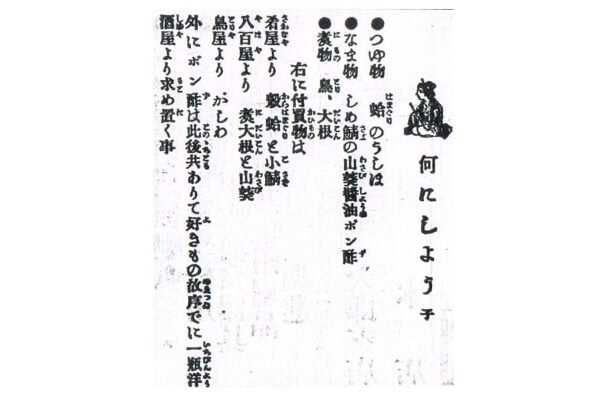 何にしよう子
●つゆ物 蛤のうしほ
●なま物 しめ鯖の山葵醤油ポン酢、
●煮物 鳥、大根
右に付買物は
肴屋より 殻蛤と小鯖
八百屋より 煮大根と山葵
鳥屋より かしわ
外にポン酢は此後共ありて好きもの故序でに一瓶洋
酒屋より求め置く事